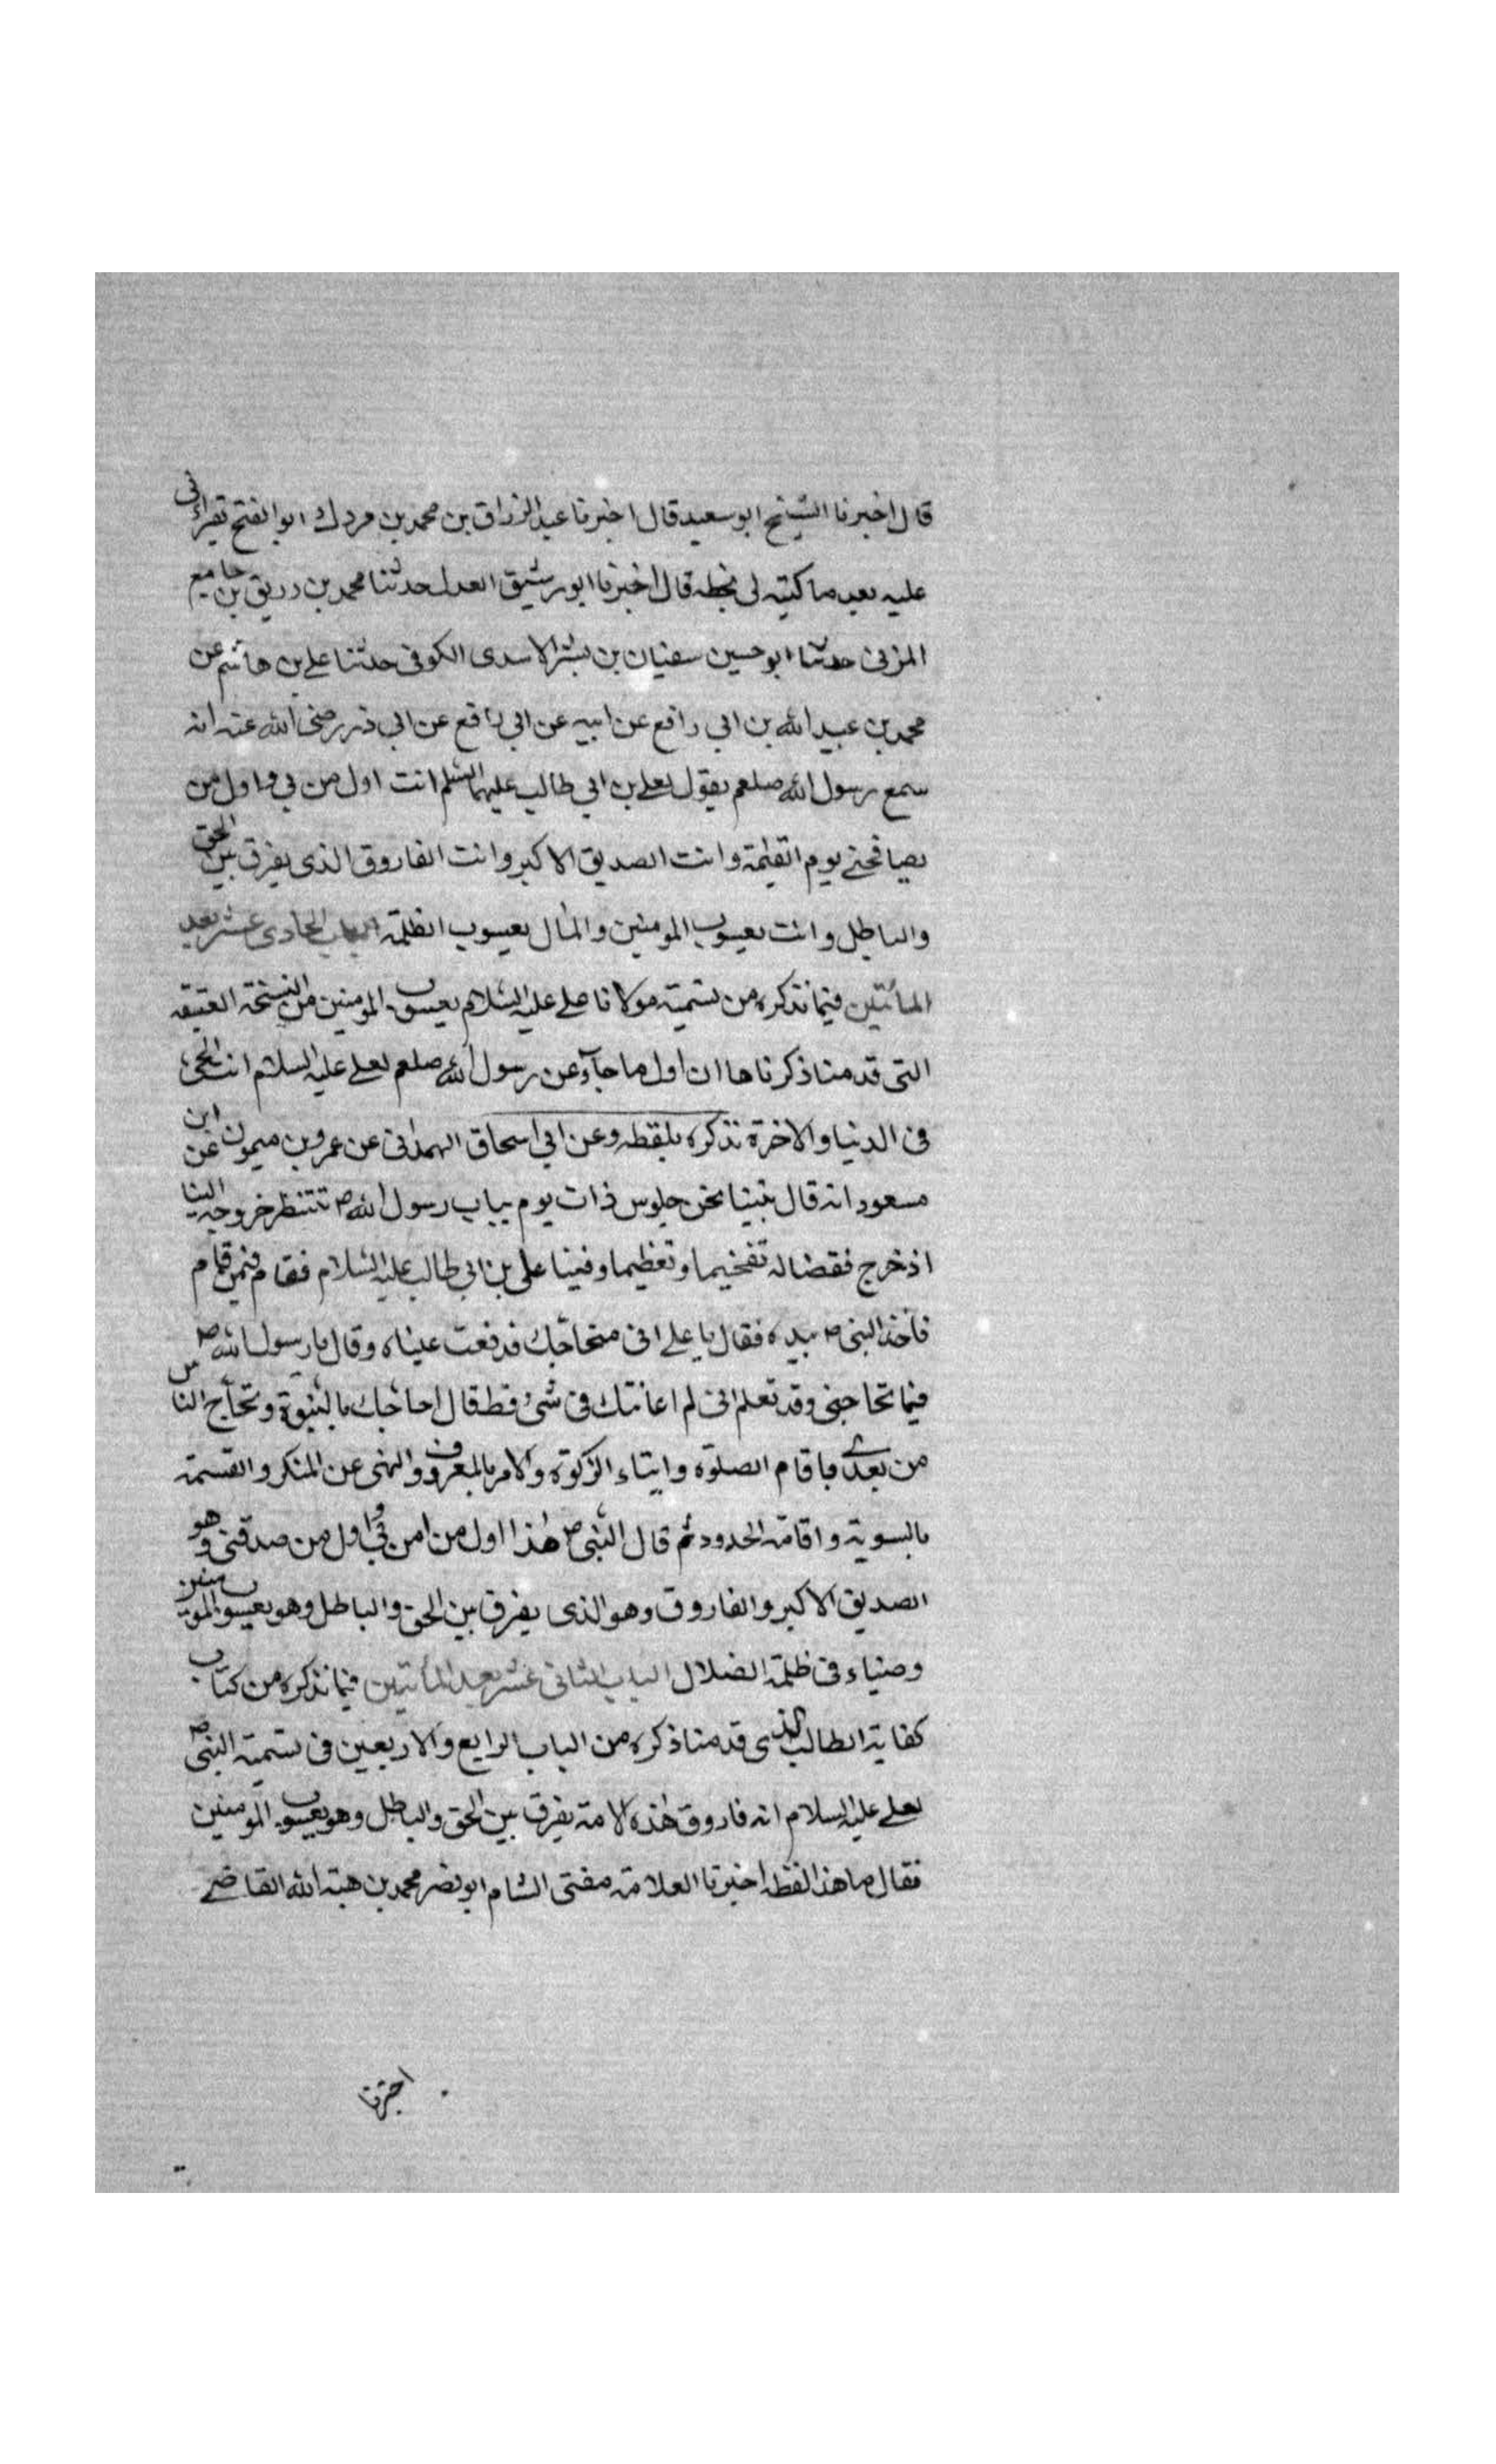 قال اخبرنا الشيخ ابو سعيد قال اخبرنا عبد الرزاق بن محمد بن مردك ابو الفتح بقراءتي
عليه بعد ما كتبه لى بخطه قال اخبرنا ابو رشيق العدل حدثنا محمد بن رزيق بن جامع
المزنى حدثنا ابو حسين سفيان بن بشر الاسدى الكوفى حدثنا على بن هاشم عن
محمد بن عبيد الله بن ابي رافع عن ابيه عن ابي رافع عن ابي ذر رضى الله عنه انه
سمع رسول الله صلعم يقول لعلى بن ابي طالب عليهما السلم انت اول من بي و اول من
يصافحنى يوم القيمة وانت الصديق الاكبر وانت الفاروق الذى يفرق بين الحق
والباطل وانت يعسوب المومنين والمال يعسوب الظلمة الباب الحادى عشر بعد
المأتين فيما نذكره من تسمية مولانا على عليه السلام يعسوب المومنين من النسخة العتيقه
التى قدمنا ذكرنا ها ان اول ما جاء عن رسول الله صلعم لعلى عليه السلام انت اخى
فى الدنيا والاخرة نذكره بلفظه وعن ابي اسحاق الهمدانى عن عمرو بن ميمون عن ابن
مسعود انه قال بينا نحن جلوس ذات يوم بباب رسول الله ص ننتظر خروجه الينا
اذ خرج فقضاله تفخيما وتعظيما وفينا على بن ابي طالب عليه السلام فقام فيمن قام
فاخذ النبى ص بيده فقال يا على انى متحاجك فدفعت عيناه وقال يا رسول الله ص
فيما تحاجنى وقد تعلم انى لم اعاتبك فى شئ قط قال احاجك بالنبوة وتحاج الناس
من بعدى باقام الصلوة وايتاء الزكوة والامر بالمعروف والنهى عن المنكر والقسمة
بالسوية واقامة الحدود ثم قال النبى ص هذا اول من امن بي و اول من صدقنى وهو
الصديق الاكبر والفاروق وهو الذى يفرق بين الحق والباطل وهو يعسوب المومنين
وضياء فى ظلمة الضلال الباب الثانى عشر بعد المأتين فيما نذكره من كتاب
كفاية الطالب الذى قدمنا ذكره من الباب الرابع والاربعين فى تسمية النبى ص
لعلى عليه السلام انه فاروق هذه الامة يفرق بين الحق والباطل وهو يعسوب المومنين
فقال ما هذا لفظه اخبرنا العلامة مفتى الشام ابو نصر محمد بن هبة الله القاضى
اخبرنا